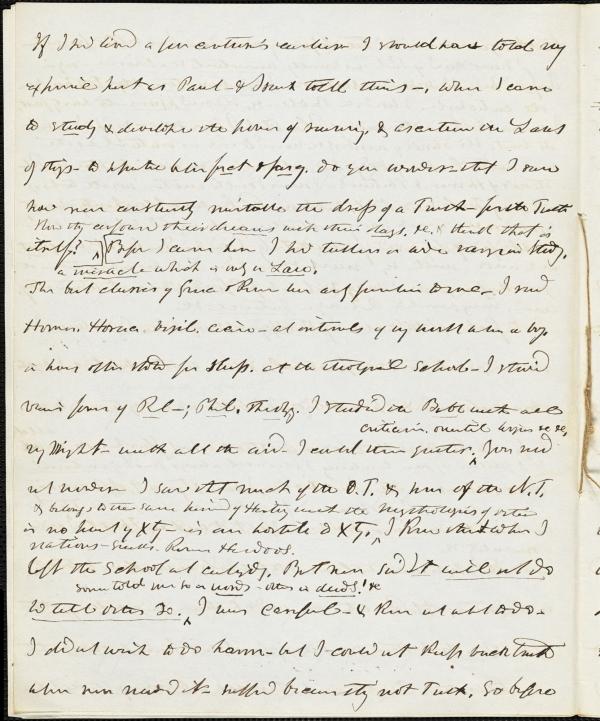 If I had lived a few centuries earlier I should have told my
experience just as Paul – & Isaiah tell theirs –. When I came
to study & develope the power of reasoning, & ascertain the Laws
of things – to separate between fact & do you wonder that I saw
how men constantly mistake the dress of a Truth – for the Truth
How they confound their dreams with their days, &c. & think that is
itself? Before I came here I had tellers a wide range in study.
a miracle which is only a Law.
The best classics of Greece & Rome were early familiar to me – I read
Homer. Horace. Virgil. Cicero – at intervals of my work when a boy
in hours often stolen for sleep. At the theological School – I studied
various forms of Rel –; Phil. Theology. I studied the Bible with all
criticism. oriental &c &c,
my might – with all the aid I could then gather. You need
not wonder I saw that much of the O.T. & some of the N.T.
& belongs to the same kind of History with the mythologies of other
is no part of Xty – is even hostile to Xty, I knew that when I
nations – Greeks. Romans Hindoos.
left the School at Cambridge. But men said It will not do
some told me so in words – others in deeds! &c
to tell others so. I was careful – & knew not what to do –
I did not wish to do harm – but I could not keep back truth
when men needed it – suffered because they had not Truth. So before